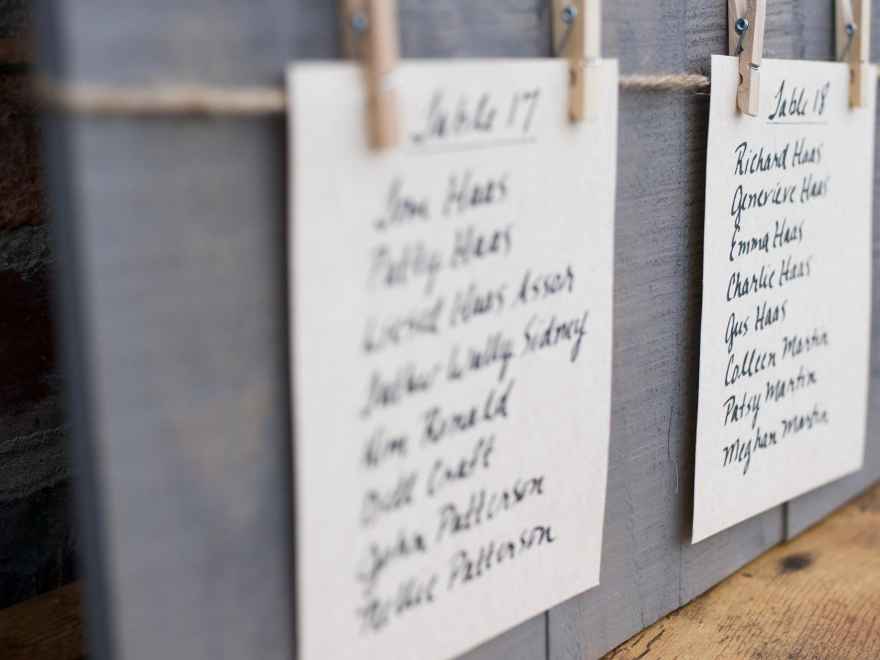 Table 17
Tom Haas
Patty Haas
Liesel Haas Assor
Father Wally Sidney
Ronald
Bill Craft
John Patterson
Nellie Patterson
Table 18
Richard Haas
Genevieve Haas
Emma Haas
Charlie Haas
Gus Haas
Colleen Martin
Patsy Martin
Meghan Martin